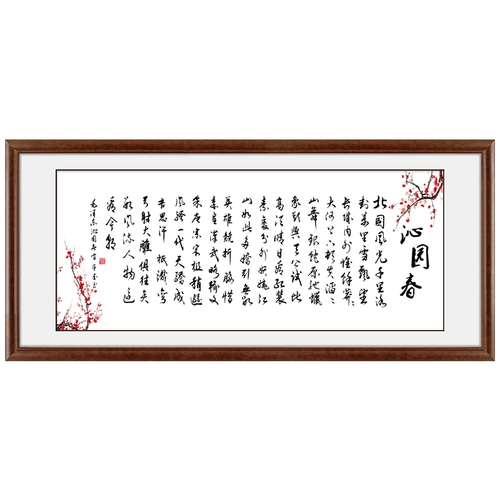 沁园春
北国风光千里冰
封万里雪飘望
长城内外惟余莽莽
大河上下顿失滔滔
山舞银蛇原驰蜡
象欲与天公试比
高须晴日看红装
素裹分外妖娆江
山如此多娇引无数
英雄竞折腰惜
秦皇汉武略输文
采唐宗宋祖稍逊
风骚一代天骄成
吉思汗只识弯
弓射大雕俱往矣
数风流人物还
看今朝
毛泽东沁园春雪